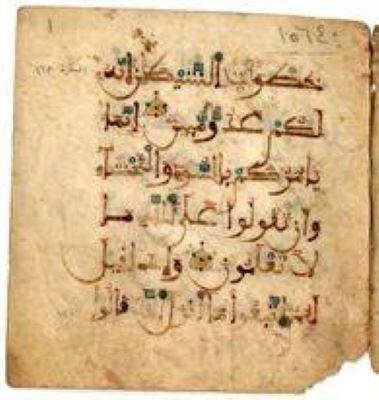 ١
خطوت الشيطن انه
لكم عدو مبين انما
يامركم بالسوء والفحشاء
وان تقولوا على الله ما
لا تعلمون واذا قيل
لهم اتبعوا ما انزل الله قالوا